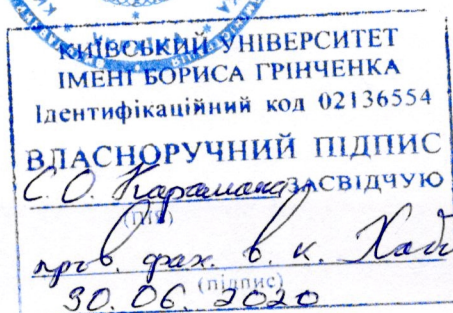 КИЇВСЬКИЙ УНІВЕРСИТЕТ
ІМЕНІ БОРИСА ГРІНЧЕНКА
Ідентифікаційний код 02136554
ВЛАСНОРУЧНИЙ ПІДПИС
С. О. Карамана ЗАСВІДЧУЮ
(ПІБ)
пров. фах. в. к.
(підпис)
30. 06. 2020